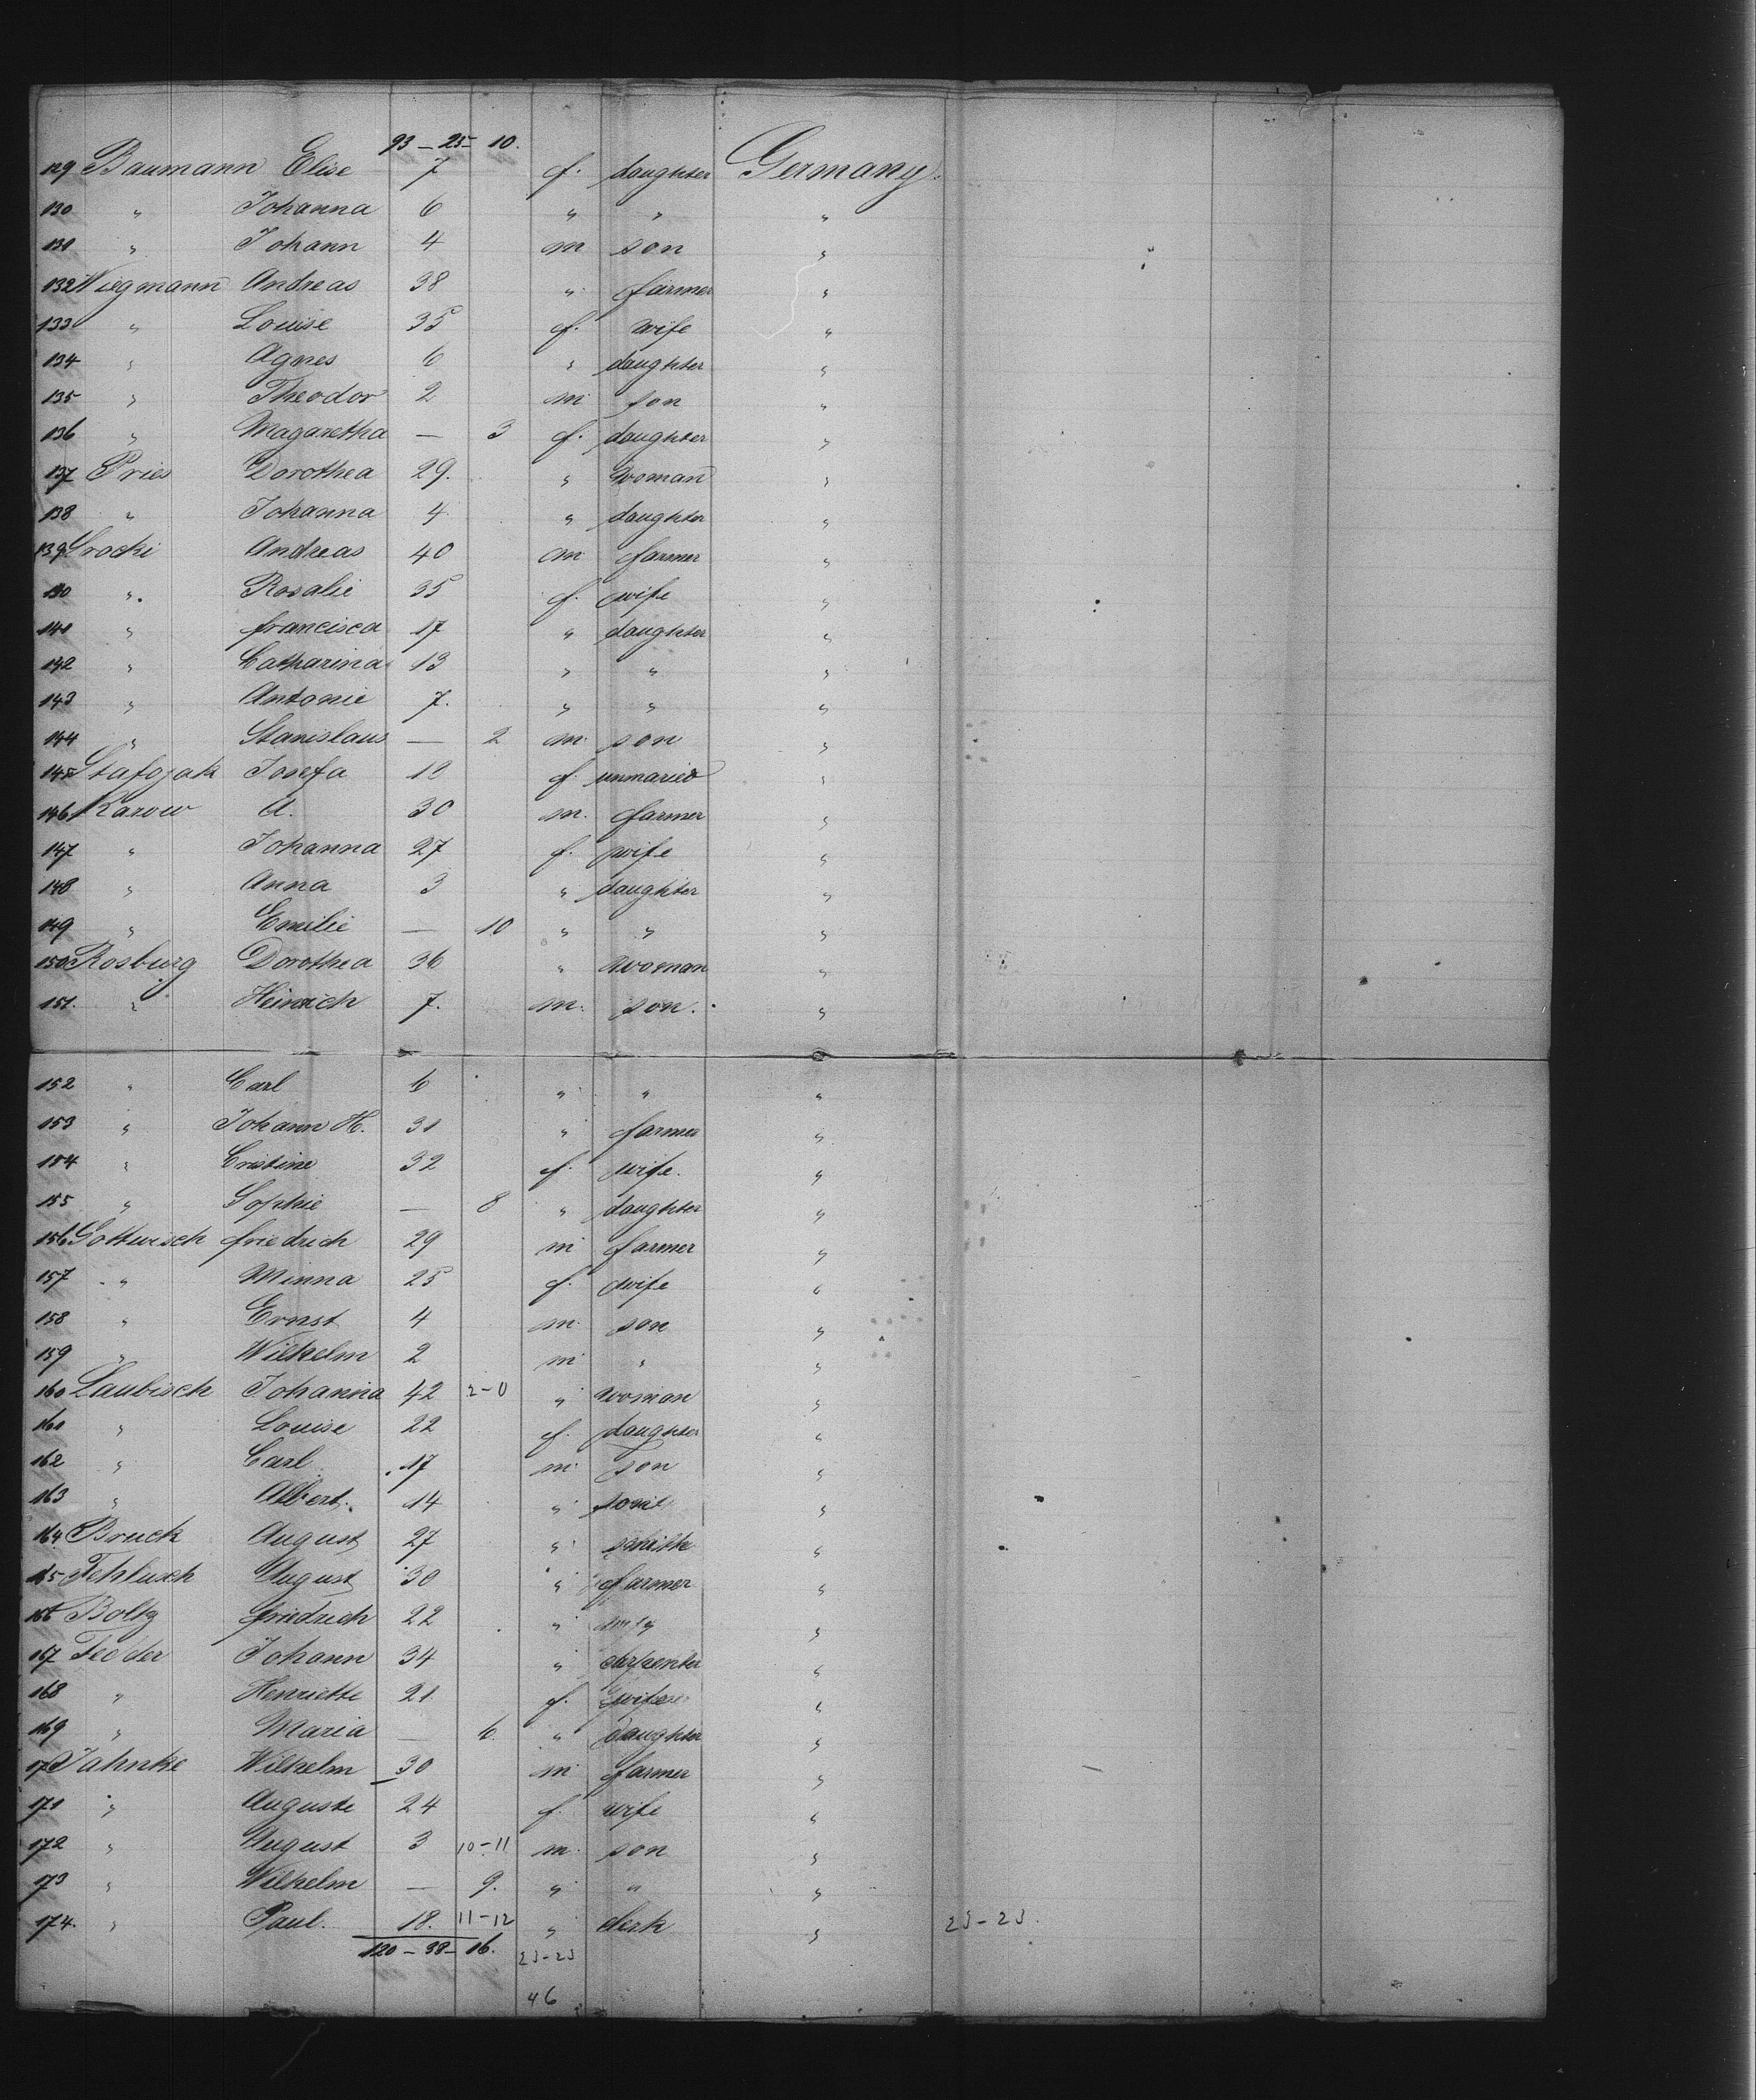 93 - 25 - 10.
129 Baumann Elise 7 f. daughter Germany.
130 " Johanna 6 " " "
131 " Johann 4 m son "
132 Wiegmann Andreas 38 " farmer "
133 " Louise 35 f. wife "
134 " Agnes 6 " daughter "
135 " Theodor 2 m son "
136 " Magaretha — 3 f. daughter "
137 Pries Dorothea 29. " woman "
138 " Johanna 4 " daughter "
139 Grocki Andreas 40 m farmer "
140 " Rosalie 35 f. wife "
141 " francisca 17 " daughter "
142 " Catharina 13 " " "
143 " Antonie 7. " " "
144 " Stanislaus — 2 m. son "
145 Josefa f. unmaried "
146 Karow A. 30 m. farmer "
147 " Johanna 27 f. wife "
148 " Anna 3 " daughter "
149 " Emilie — 10 " " "
150 Rosburg Dorothea 36 " woman "
151. " Heinrich 7. m. son. "
152 " Carl 6 " " "
153 " Johann H. 31 " farmer "
154 " Cristine 32 f. wife. "
155 " Sophie — 8 " daughter "
156 friedrich 29 m farmer "
157 " Minna 25 f. wife "
158 " Ernst 4 m. son "
159 " Wilhelm 2 m " "
160 Laubisch Johanna 42 2-0 " woman "
161 " Louise 22 f. daughter "
162 " Carl 17 m. son "
163 " Albert. 14 " "
164 Bruck August 27 " "
165 August 30 " farmer "
166 Boltz friedrich 22 " "
167 Fedder Johann 34 " carpenter "
168 " Henriette 21 f. wife "
169 " Maria — 6. " daughter "
170 Jahnke Wilhelm 30 m. farmer "
171 " Auguste 24 f. wife "
172 " August 3 10-11 m. son "
173 " Wilhelm — 9. " " "
174. " Paul. 18. 11-12 " clerk " 23-23.
120 - 38 - 16. 23-23
46